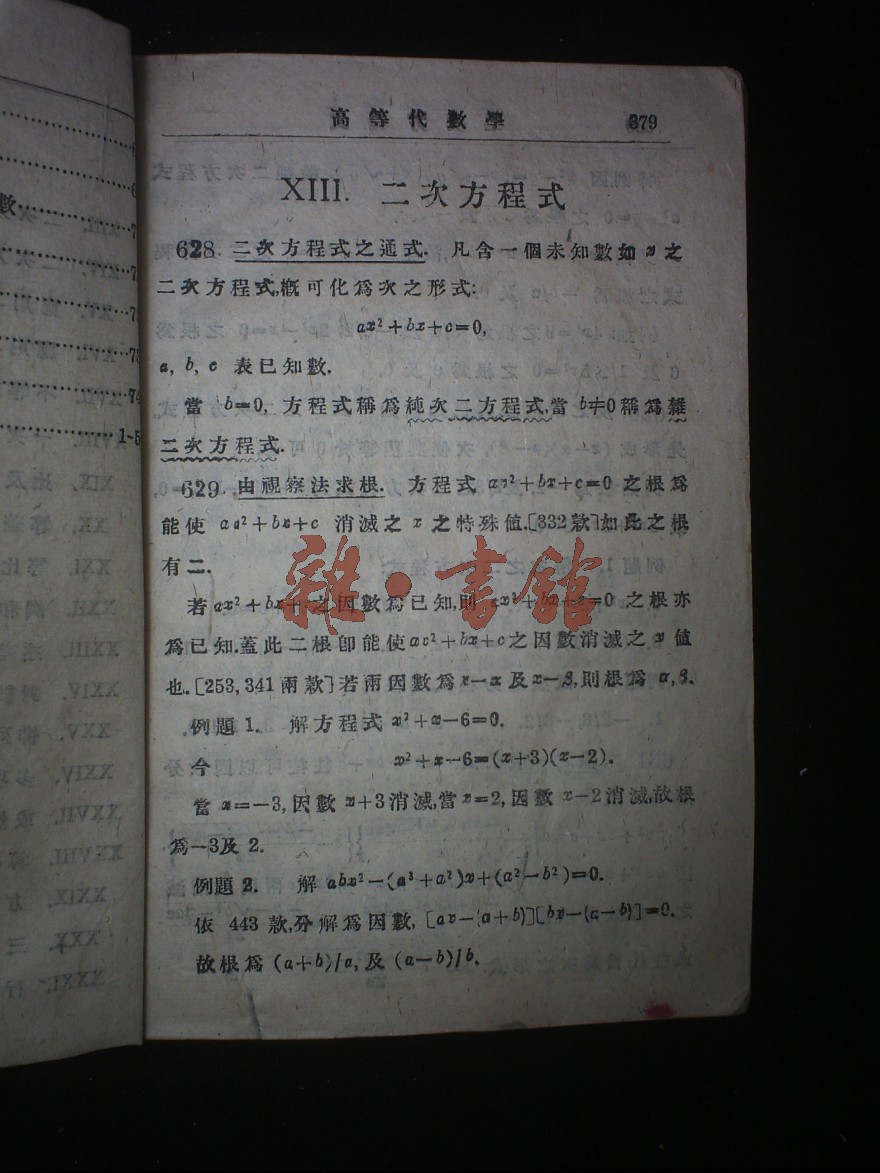 高等代數學 379
XIII. 二次方程式
628. 二次方程式之通式. 凡含一個未知數如 x 之
二次方程式,概可化爲次之形式:
ax²+bx+c=0,
a, b, c 表已知數.
當 b=0, 方程式稱爲純次二方程式,當 b≠0 稱爲雜
二次方程式.
629. 由視察法求根. 方程式 ax²+bx+c=0 之根爲
能使 ax²+bx+c 消滅之 x 之特殊値.[332款]如此之根
有二.
若 ax²+bx+c之因數爲已知,則 ax²+bx+c=0 之根亦
爲已知.蓋此二根卽能使ax²+bx+c之因數消滅之 x 値
也.[253,341兩款]若兩因數爲x−α及x−β,則根爲 α,β.
例題 1. 解方程式 x²+x−6=0.
今 x²+x−6=(x+3)(x−2).
當 x=−3,因數 x+3消滅,當x=2,因數 x−2消滅,故根
爲−3及 2.
例題 2. 解 abx²−(a²+a²)x+(a²−b²)=0.
依 443 款,分解爲因數, [ax−(a+b)][bx−(a−b)]=0.
故根爲 (a+b)/a, 及 (a−b)/b.
雜·書館
數
7
7
7
7
73
74
1~5
XIX.
XX.
XXI.
XXII.
XXIII.
XXIV.
XXV.
XXIV.
XXVII.
XXVIII.
XXIX.
XXX.
XXXI.